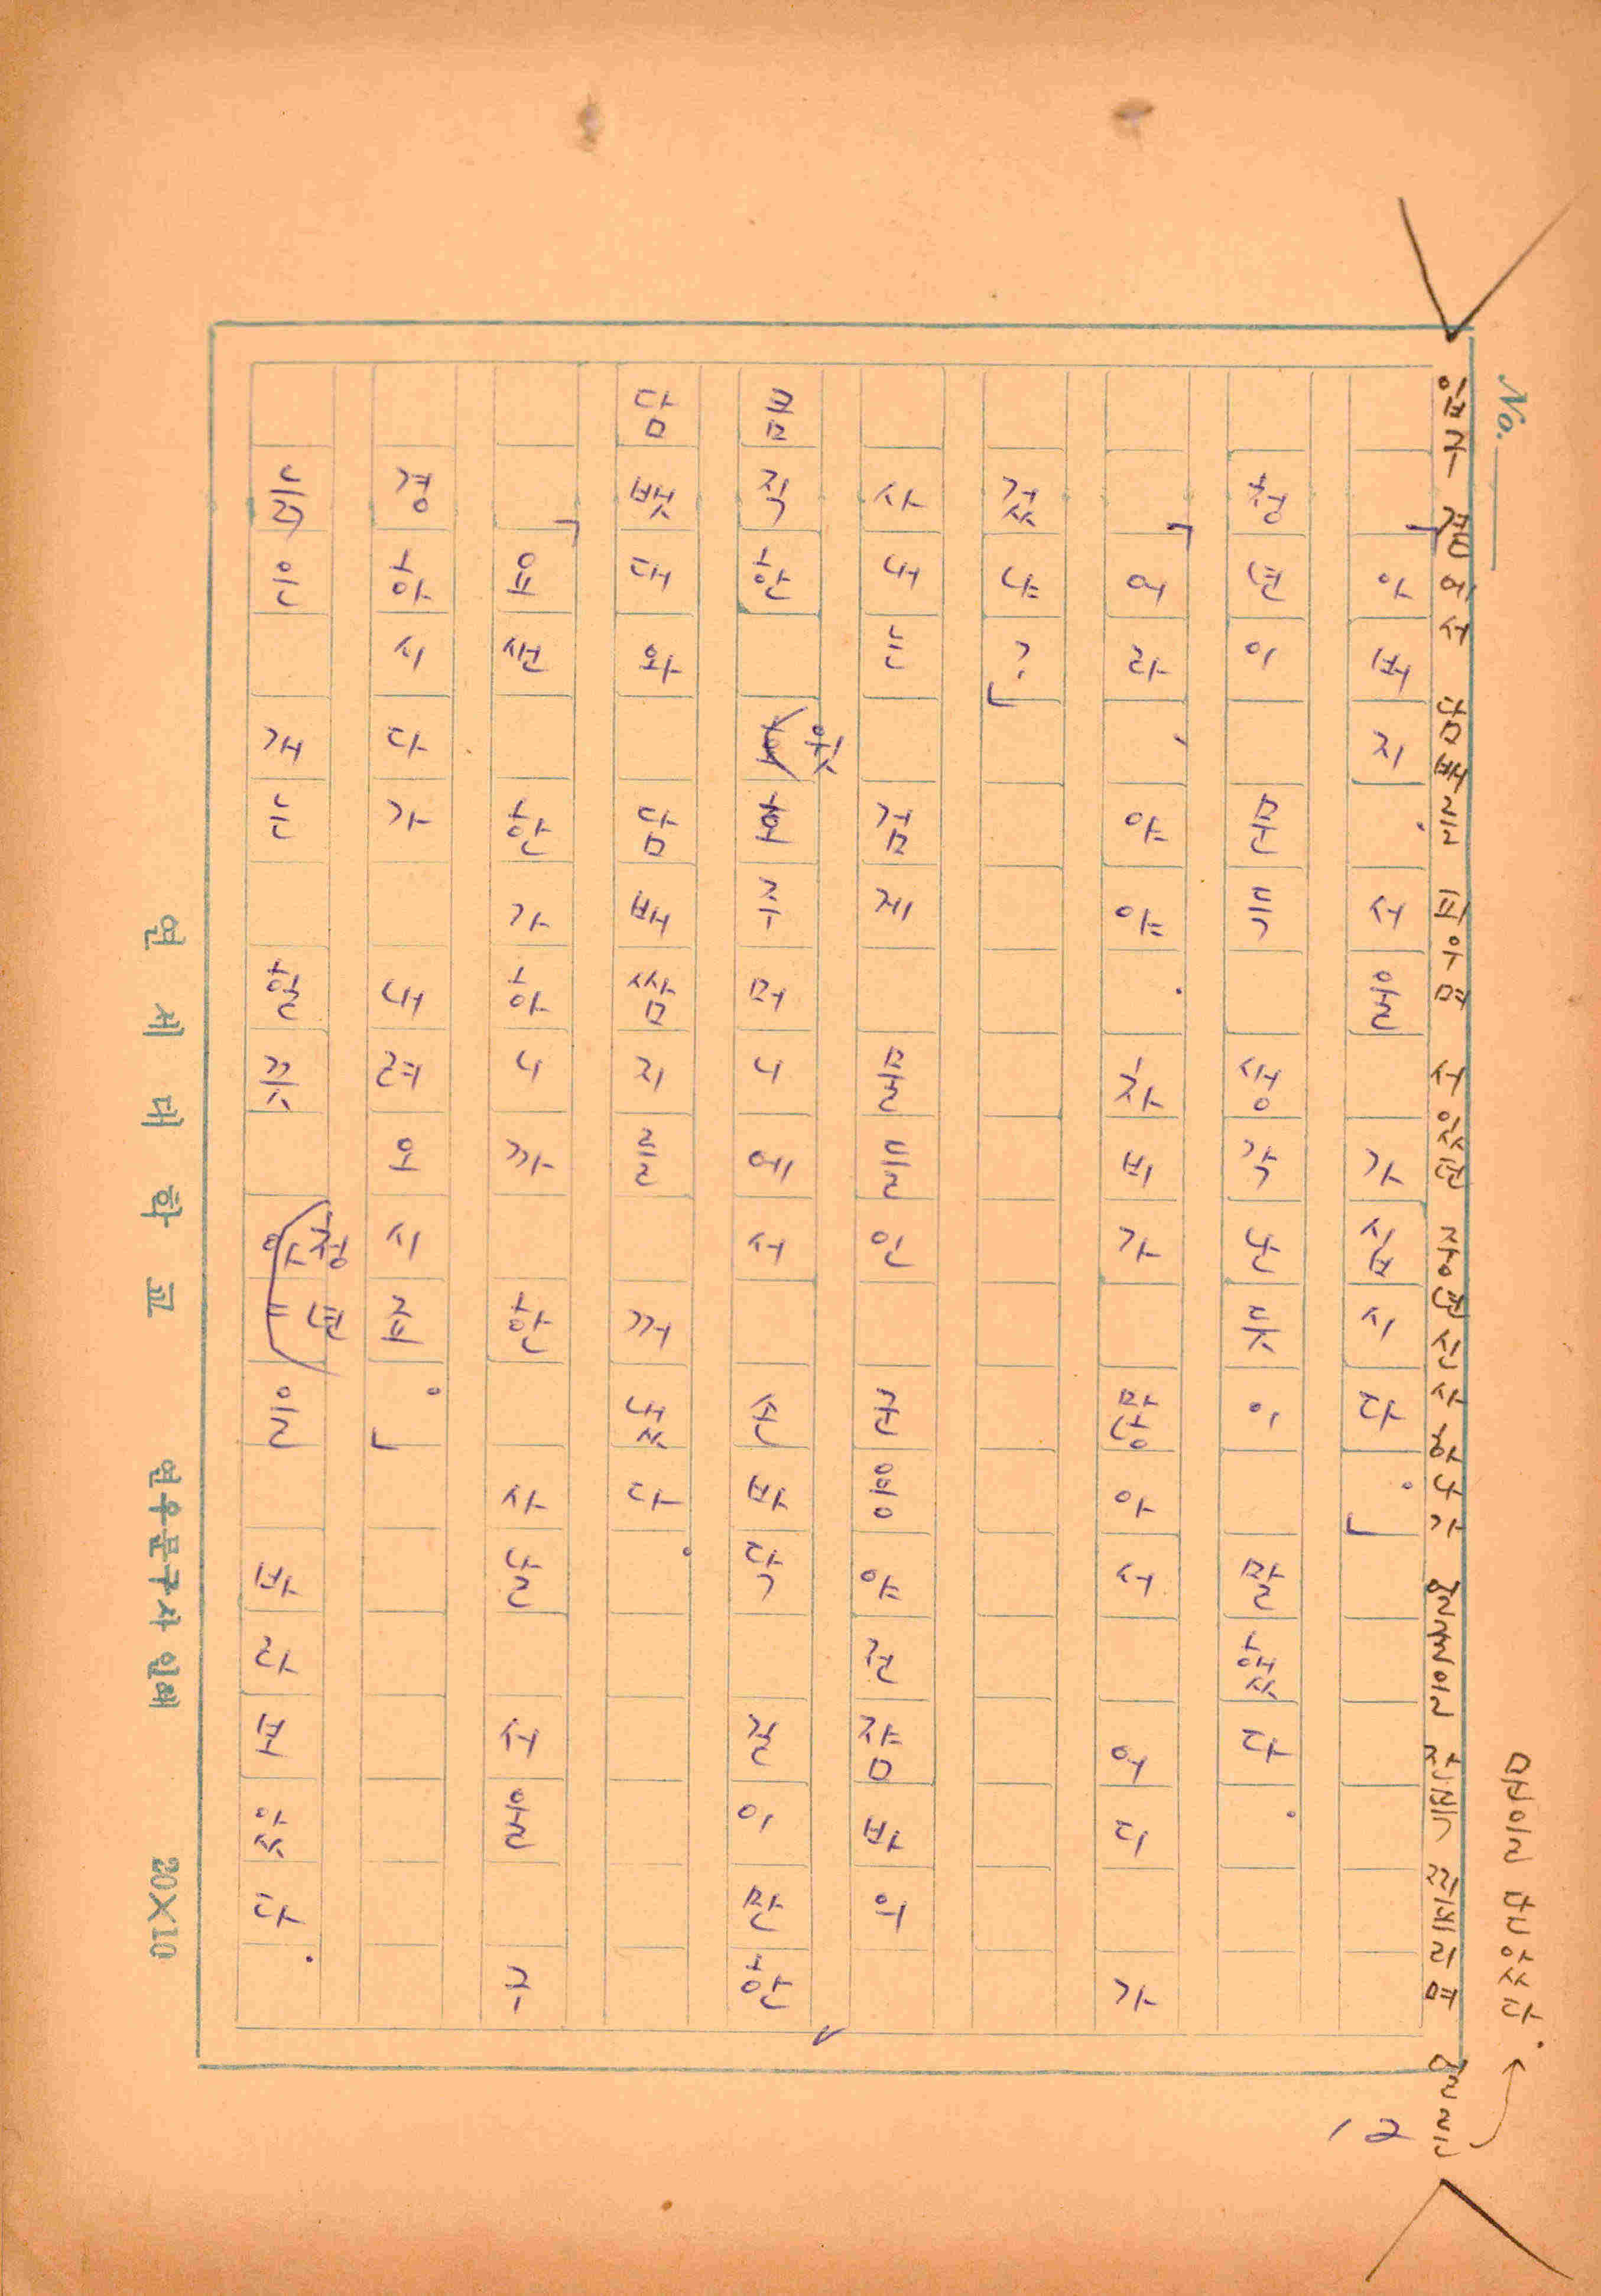 No.
입구 곁에서 담배를 피우며 서있던 중년신사 하나가 얼른
받았다.
「아버지. 서울 가십시다.」
청년이 문득 생각난듯이 말했다.
「어라, 야야. 차비가 많아서 어디 가
겄냐?」
사내는 검게 물들인 군용 야전잠바의
큼직한 주머니에서 손바닥 절이만한
담뱃대와 담배쌈지를 꺼냈다.
「요샌 한가하니까 한 사날 서울 구
경하시다가 내려오시죠.」
늙은 개는 할긋 청년을 바라보았다.
12
연세대학교 연우문구사 인쇄 20×10